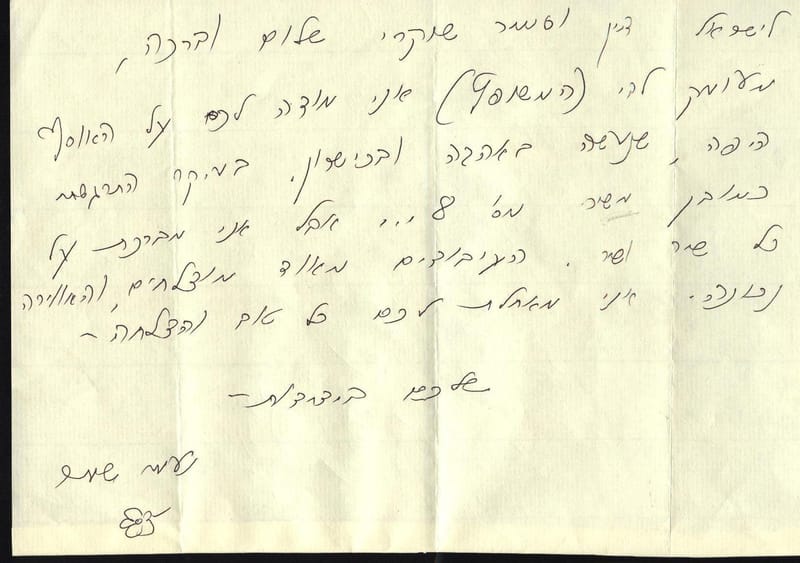 לישראל דיין וסמיר שוקרי שלום וברכה,
מעומק לבי (המשופץ) אני מודה לכם על האוסף
היפה, שנעשה באהבה ובכישרון. בעיקר התרגשתי
כמובן משיר מס' 8... אבל אני מברכת על
כל שיר ושיר. העיבודים מאוד מוצלחים, והאווירה
נכונה. אני מאחלת לכם כל טוב והצלחה –
שלכם בידידות –
נעמי שמר